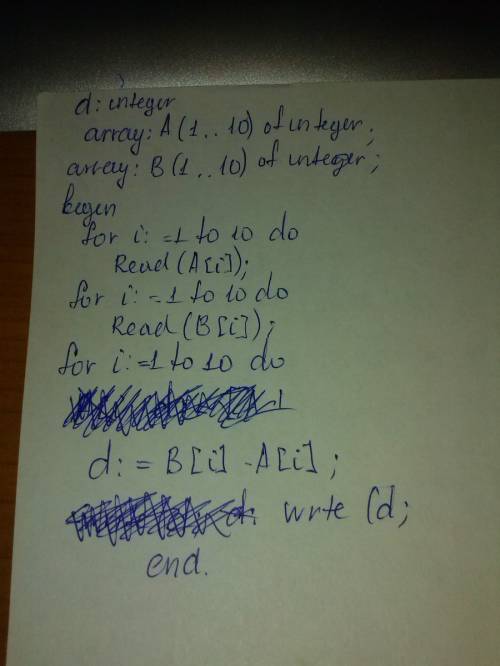 d: integer
array: A (1..10) of integer;
array: B (1..10) of integer;
begen
for i: =1 to 10 do
Read (A[i]);
for i: =1 to 10 do
Read (B[i]);
for i:=1 to 10 do
d: = B[i] - A[i];
wrte (d;
end.